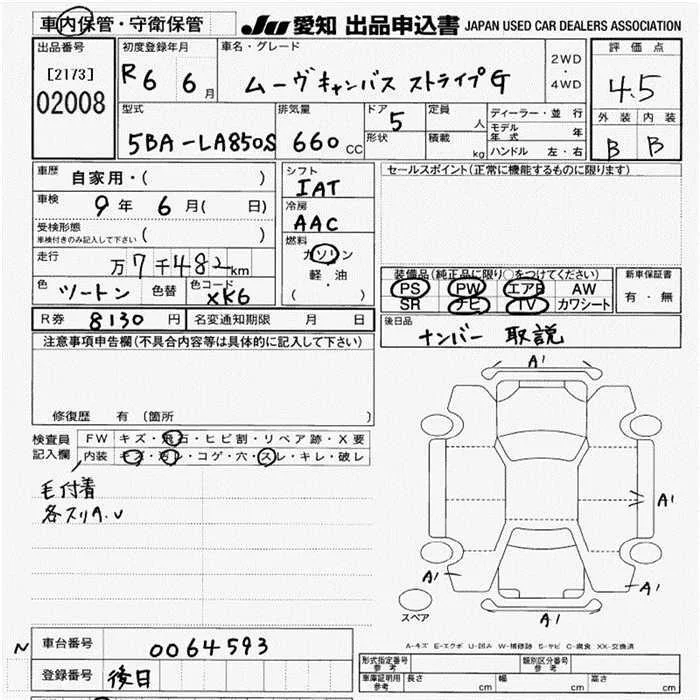 車内保管・守衛保管 JU 愛知 出品申込書 JAPAN USED CAR DEALERS ASSOCIATION
出品番号 初度登録年月 車名・グレード 評価点
[2173] 02008 R6 6月 ムーヴキャンバス ストライプG 2WD・4WD 4.5
型式 排気量 ドア 定員 ディーラー・並行 外装 内装
5BA-LA850S 660cc 5 人 モデル年式 年 B B
形状 積載 kg ハンドル 左・右
車歴 自家用・( ) シフト IAT セールスポイント(正常に機能するものに限ります)
車検 9年 6月( 日) 冷房 AAC
受検形態 車検付きのみ記入して下さい ( ) 燃料 ガソリン
走行 万7千482km 軽・油 ( )
色 ツートン 色替 色コード XK6
装備品(純正品に限り○をつけてください) 新車保証書
PS PW エアB AW 有・無
SR ナビ TV カワシート
R券 8130円 名変通知期限 月 日 後日品
ナンバー 取説
注意事項申告欄(不具合内容等は具体的に記入して下さい)
修復歴 有 (箇所 )
検査員記入欄 FW キズ・飛石・ヒビ割・リペア跡・X要
内装 キズ・汚レ・コゲ・穴・スレ・キレ・破レ
毛付着
各スリA.U
A'
A'
A' A'
A'
スペア
A-キズ E-エクボ U-凹み W-補修跡 S-サビ C-腐食 XX-交換済
N 車台番号 0064593
登録番号 後日
形式指定番号 参考 類別区分番号 参考
車庫証明用 参考 長さ cm 幅 cm 高さ cm